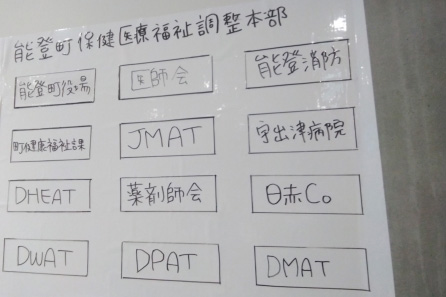 能登町保健医療福祉調整本部
能登町役場
医師会
能登消防
町健康福祉課
JMAT
宇出津病院
DHEAT
薬剤師会
日赤Co
DWAT
DPAT
DMAT